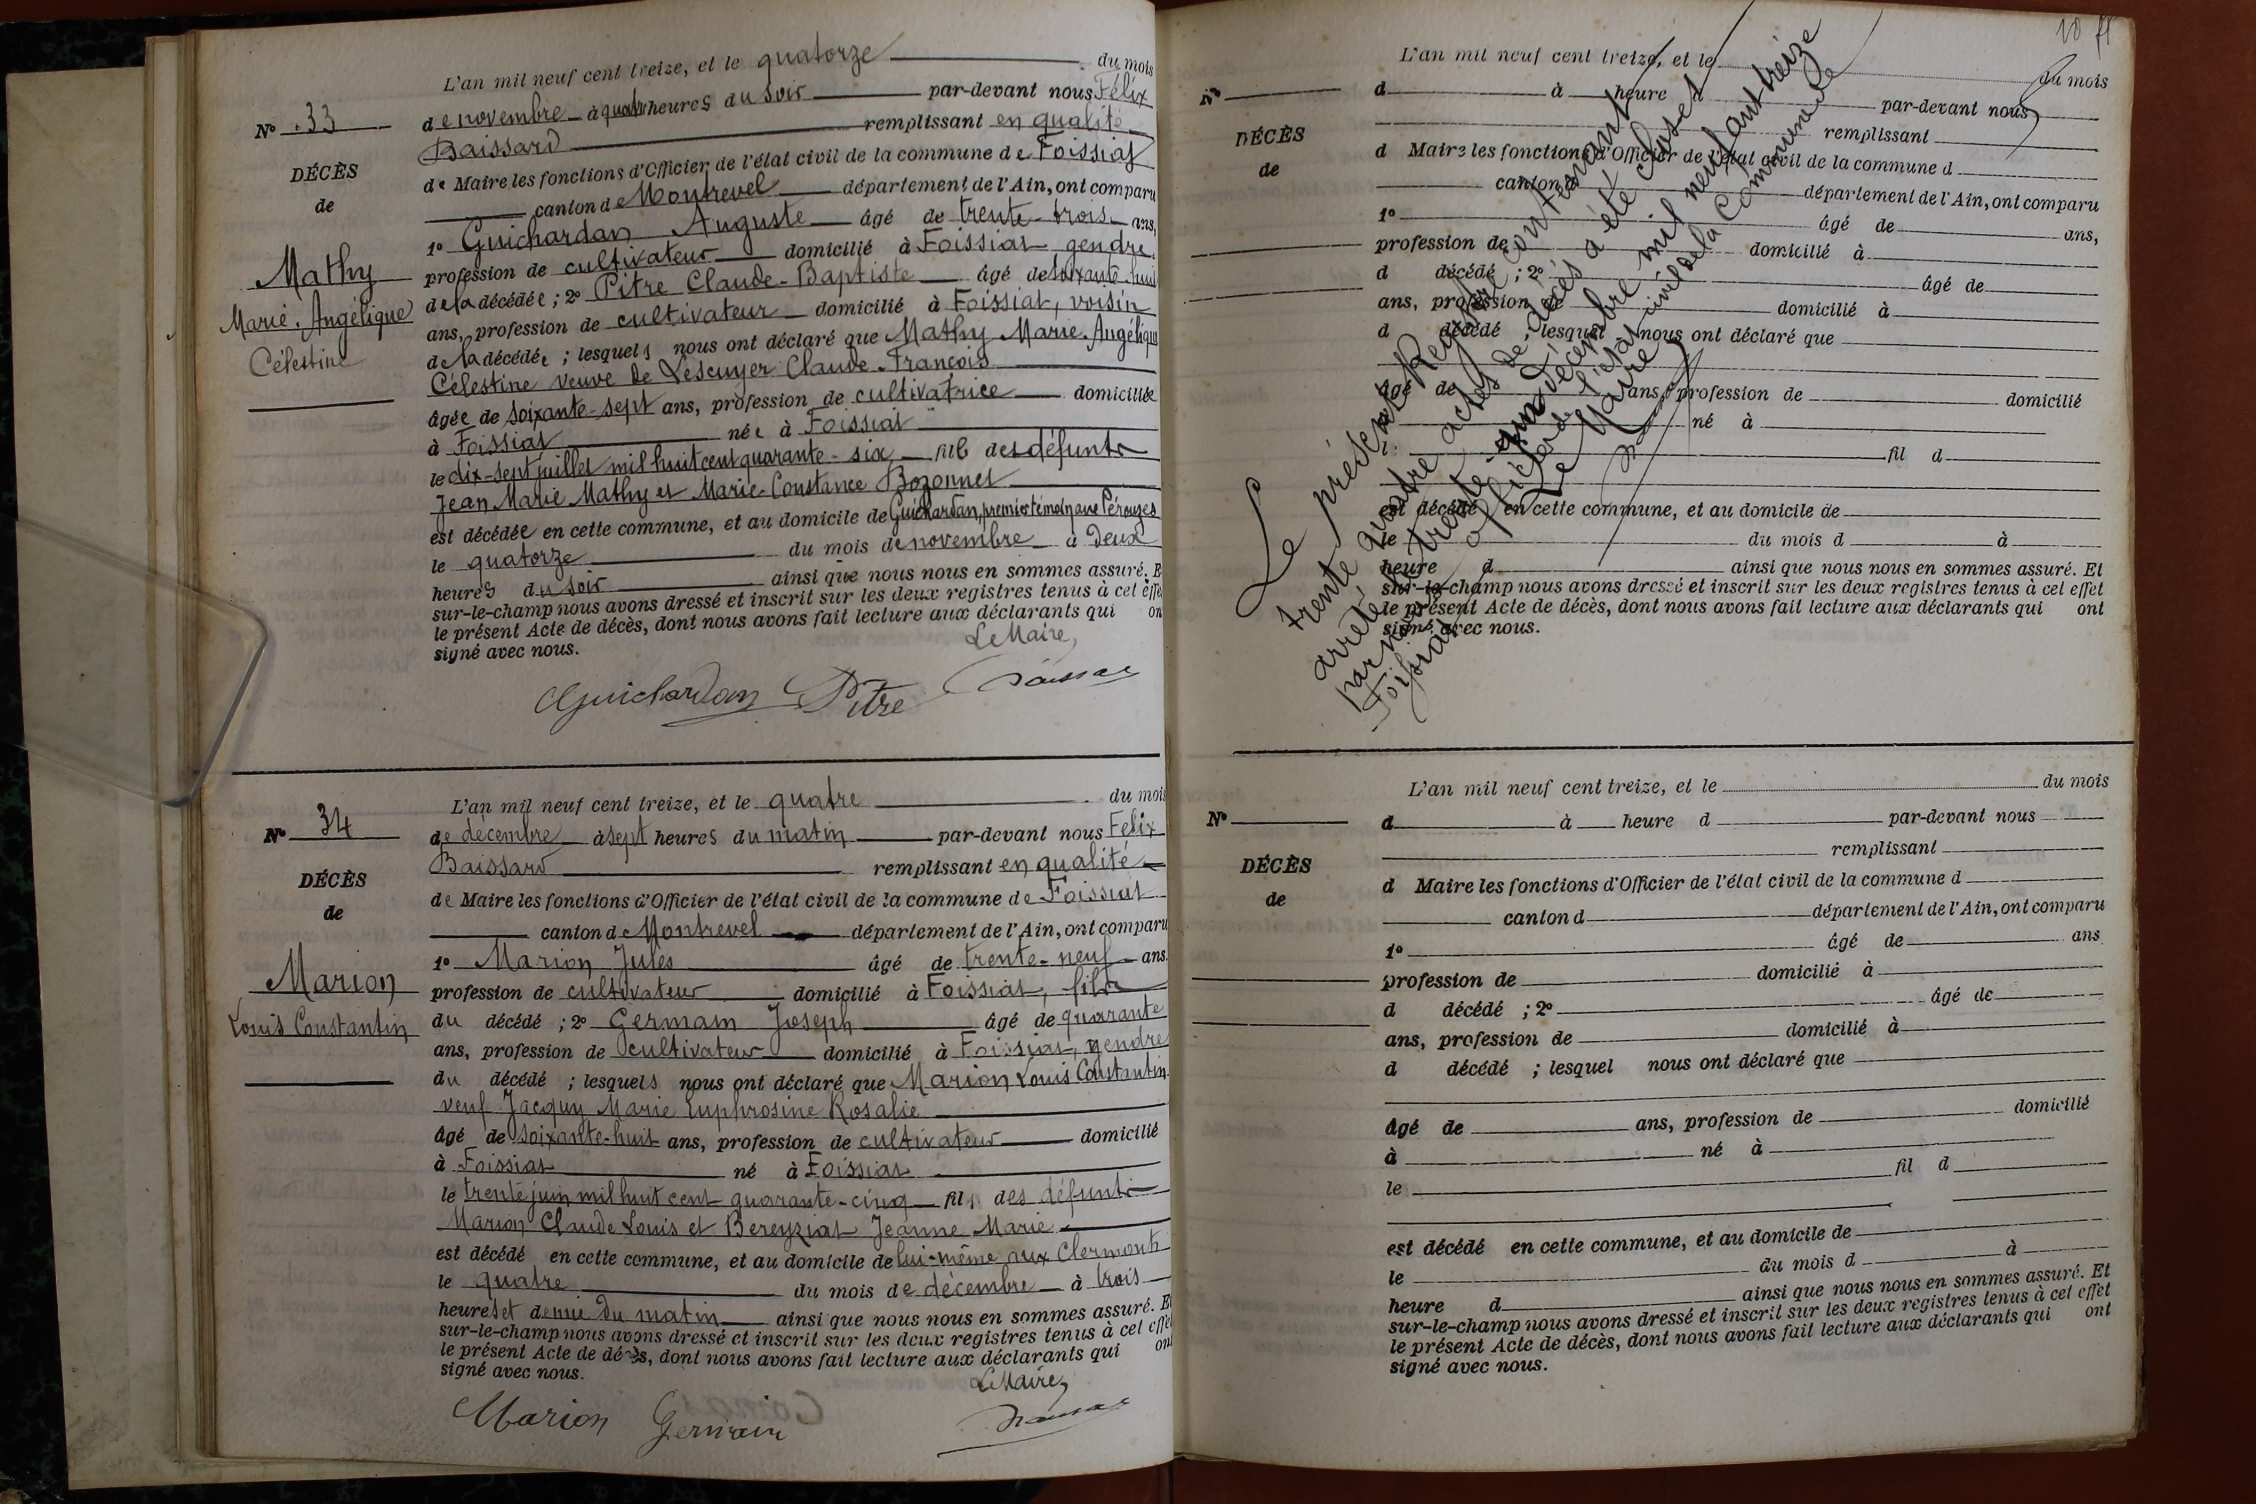 L'an mil neuf cent treize, et le quatorze du mois
N° 33
de novembre à quatre heures du soir par-devant nous Félix
Baissard remplissant en qualité
DÉCÈS
de
de Maire les fonctions d'Officier de l'état civil de la commune de Foissiat
canton de Montrevel département de l'Ain, ont comparu
1° Guichardan Auguste âgé de trente-trois ans,
Mathy
Marie-Angélique
Célestine
profession de cultivateur domicilié à Foissiat gendre
de la décédée ; 2° Pitre Claude-Baptiste âgé de soixante-huit
ans, profession de cultivateur domicilié à Foissiat, voisin
de la décédée ; lesquels nous ont déclaré que Mathy Marie-Angélique
Célestine veuve de Lescuyer Claude-François
âgée de soixante-sept ans, profession de cultivatrice domiciliée
à Foissiat née à Foissiat
le dix-sept juillet mil huit cent quarante-six fille des défunts
Jean Marie Mathy et Marie-Constance Bozonnet
est décédée en cette commune, et au domicile de Guichardan, premier témoin aux Pérouzes
le quatorze du mois de novembre à deux
heures du soir ainsi que nous nous en sommes assuré. E
sur-le-champ nous avons dressé et inscrit sur les deux registres tenus à cet effe
le présent Acte de décès, dont nous avons fait lecture aux déclarants qui on
signé avec nous.
Le Maire,
Guichardan Pitre Baissard
L'an mil neuf cent treize, et le quatre du mois
N° 34
de décembre à sept heures du matin par-devant nous Félix
Baissard remplissant en qualité
DÉCÈS
de
de Maire les fonctions d'Officier de l'état civil de la commune de Foissiat
canton de Montrevel département de l'Ain, ont comparu
1° Marion Jules âgé de trente-neuf ans
Marion
Louis Constantin
profession de cultivateur domicilié à Foissiat, fils
du décédé ; 2° Germain Joseph âgé de quarante
ans, profession de cultivateur domicilié à Foissiat, gendre
du décédé ; lesquels nous ont déclaré que Marion Louis Constantin
veuf Jacquy Marie Euphrosine Rosalie
âgé de soixante-huit ans, profession de cultivateur domicilié
à Foissiat né à Foissiat
le trente juin mil huit cent quarante-cinq fils des défunts
Marion Claude Louis et Bereyziat Jeanne Marie
est décédé en cette commune, et au domicile de lui-même aux Clermonts
le quatre du mois de décembre à trois
heures et demie du matin ainsi que nous nous en sommes assuré. E
sur-le-champ nous avons dressé et inscrit sur les deux registres tenus à cet effe
le présent Acte de décès, dont nous avons fait lecture aux déclarants qui on
signé avec nous.
Le Maire,
Marion Germain Baissard
10
L'an mil neuf cent treize, et le du mois
N°
d à heure d par-devant nous
remplissant
DÉCÈS
de
d Maire les fonctions d'Officier de l'état civil de la commune d
canton d département de l'Ain, ont comparu
1° âgé de ans,
profession de domicilié à
d décédé ; 2° âgé de
ans, profession de domicilié à
d décédé ; lesquel nous ont déclaré que
âgé de ans, profession de domicilié
né à
fil d
est décédé en cette commune, et au domicile de
le du mois d à
heure d ainsi que nous nous en sommes assuré. Et
sur-le-champ nous avons dressé et inscrit sur les deux registres tenus à cet effet
le présent Acte de décès, dont nous avons fait lecture aux déclarants qui ont
signé avec nous.
Le présent Registre contenant
trente quatre actes de décès a été clos et
arrêté le trente-un décembre mil neuf cent treize
par nous officier de l'état civil de la Commune de
Foissiat
Le Maire
L'an mil neuf cent treize, et le du mois
N°
d à heure d par-devant nous
remplissant
DÉCÈS
de
d Maire les fonctions d'Officier de l'état civil de la commune d
canton d département de l'Ain, ont comparu
1° âgé de ans
profession de domicilié à
d décédé ; 2° âgé de
ans, profession de domicilié à
d décédé ; lesquel nous ont déclaré que
âgé de ans, profession de domicilié
à né à
le fil d
est décédé en cette commune, et au domicile de
le du mois d à
heure d ainsi que nous nous en sommes assuré. Et
sur-le-champ nous avons dressé et inscrit sur les deux registres tenus à cet effet
le présent Acte de décès, dont nous avons fait lecture aux déclarants qui ont
signé avec nous.